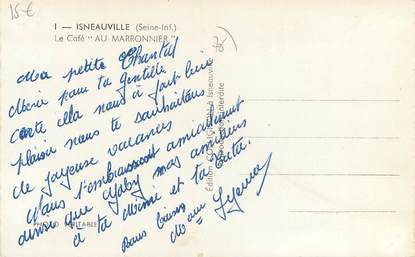 15€
1 — ISNEAUVILLE (Seine-Inf.)
Le Café "AU MARRONNIER"
76
Ma petite Chantal
Merci pour ta gentille
carte elle nous a fait bien
plaisir nous te souhaitons
de joyeuse vacances
Nous t'embrassons amicalement
ainsi que Gaby mes amitiés
à ta Mémé et ta
Bons baisers
PHOTO VÉRITABLE
Edition Isneauville
interdite